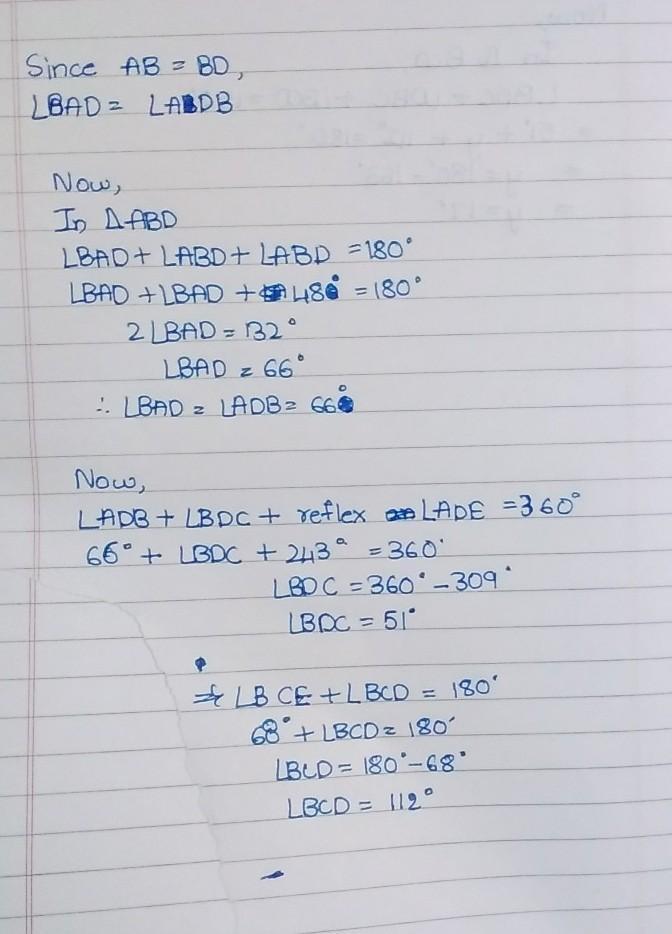 Since AB = BD,
∠BAD = ∠ADB
Now,
In ΔABD
∠BAD + ∠ABD + ∠ABD = 180°
∠BAD + ∠BAD + 48° = 180°
2∠BAD = 132°
∠BAD = 66°
∴ ∠BAD = ∠ADB = 66°
Now,
∠ADB + ∠BDC + reflex ∠ADE = 360°
66° + ∠BDC + 243° = 360°
∠BDC = 360° - 309°
∠BDC = 51°
⇒ ∠BCE + ∠BCD = 180°
68° + ∠BCD = 180°
∠BCD = 180° - 68°
∠BCD = 112°